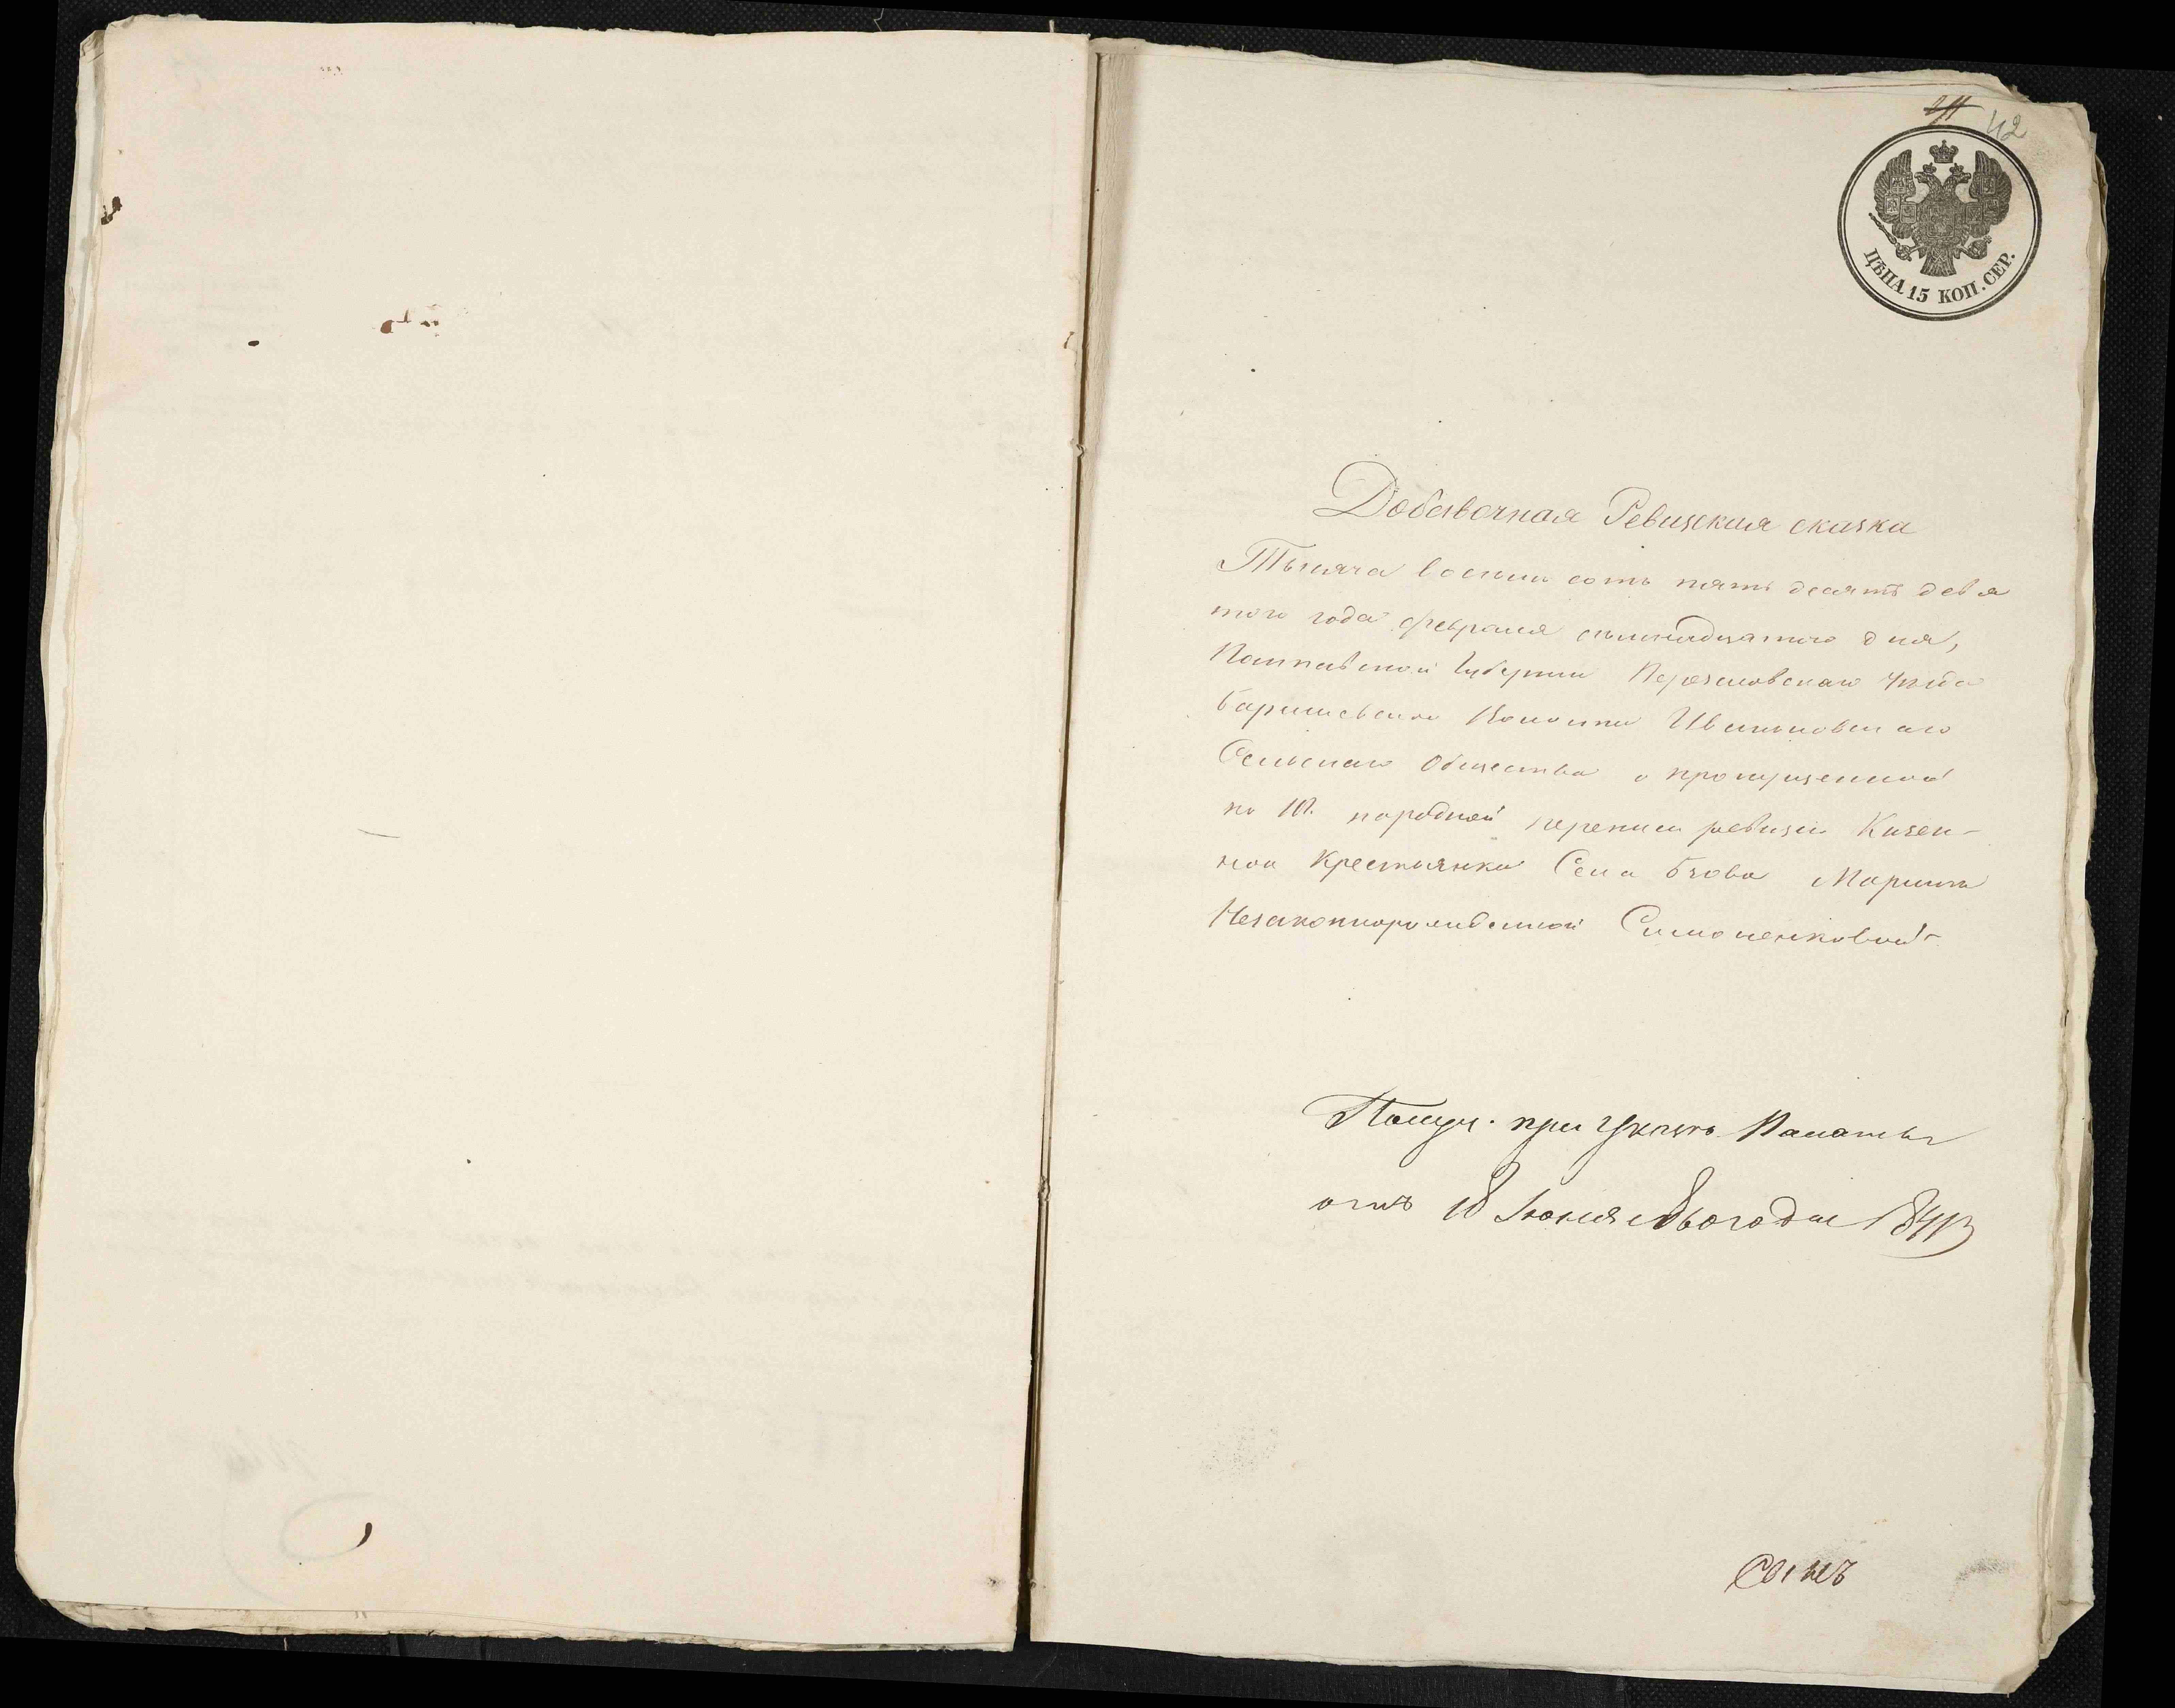 42
ЦѢНА 15 КОП. СЕР.
Добавочная Ревизская сказка
Тысяча восемь сотъ пять десятъ девя
того года февраля семнадцатого дня,
Полтавской Губерніи Переяславскаго уѣзда
Барышевской Волости Иваньковскаго
Сельскаго Общества о пропущенной
по 10й народной переписи ревизіи Казен-
ной Крестьянки Села Бзова Марины
Незаконнорожденной Симоненковой
Получ. при Указѣ Палаты
отъ 18 Іюня 1859 года
Сынъ